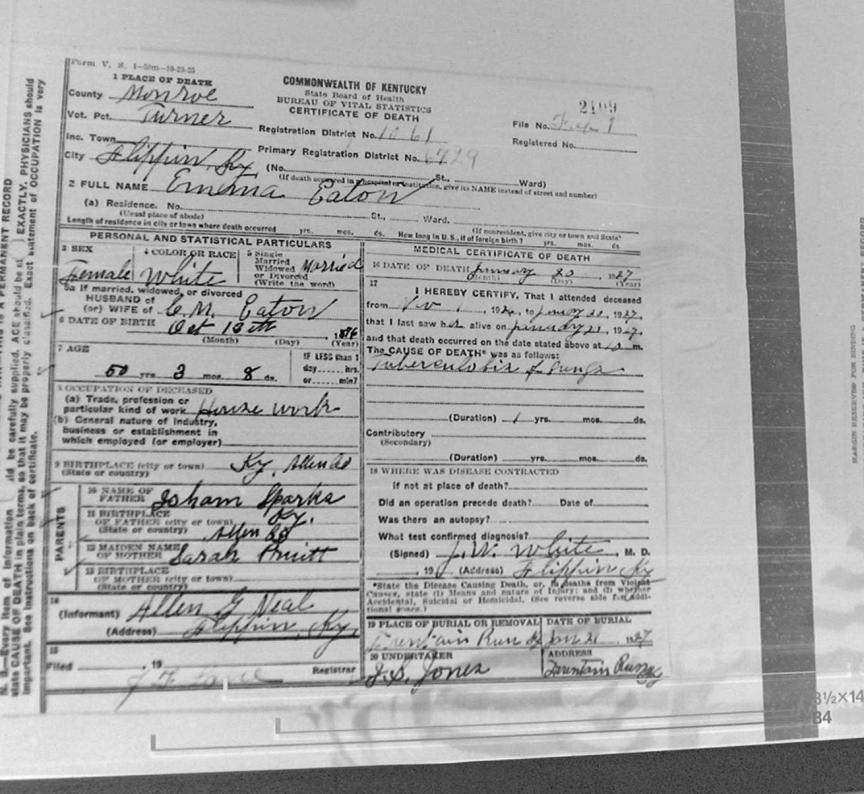 Form V. S. 1
1 PLACE OF DEATH
County Monroe
Vot. Pct. Turner
Inc. Town
City Flippin, Ky
COMMONWEALTH OF KENTUCKY
State Board of Health
BUREAU OF VITAL STATISTICS
CERTIFICATE OF DEATH
Registration District No. 1061
Primary Registration District No. 6729
(No. St., Ward)
(If death occurred in a hospital or institution, give its NAME instead of street and number)
2109
File No.
Registered No.
2 FULL NAME Emma Eaton
(a) Residence. No. St., Ward.
(Usual place of abode) (If nonresident, give city or town and State)
Length of residence in city or town where death occurred yrs. mos. ds. How long in U. S., if of foreign birth? yrs. mos. ds.
PERSONAL AND STATISTICAL PARTICULARS
3 SEX Female
4 COLOR OR RACE White
5 Single
Married
Widowed
or Divorced
(Write the word) Married
5a If married, widowed, or divorced
HUSBAND of
(or) WIFE of C. M. Eaton
6 DATE OF BIRTH Oct 13th, 1876
(Month) (Day) (Year)
7 AGE
50 yrs. 3 mos. 8 ds.
IF LESS than 1
day hrs.
or min?
8 OCCUPATION OF DECEASED
(a) Trade, profession or
particular kind of work House work
(b) General nature of industry,
business or establishment in
which employed (or employer)
9 BIRTHPLACE (city or town) Ky, Allen Co
(State or country)
PARENTS
10 NAME OF
FATHER Isham Sparks
11 BIRTHPLACE
OF FATHER (city or town) Ky.
(State or country) Allen Co
12 MAIDEN NAME
OF MOTHER Sarah Pruitt
13 BIRTHPLACE
OF MOTHER (city or town)
(State or country)
14
(Informant) Allen G Neal
(Address) Flippin, Ky,
15
Filed , 19
Registrar
MEDICAL CERTIFICATE OF DEATH
16 DATE OF DEATH January 20 1927
(Month) (Day)
17
I HEREBY CERTIFY, That I attended deceased
from 1, 192 to 1927,
that I last saw her alive on January 21, 1927,
and that death occurred on the date stated above at m.
The CAUSE OF DEATH* was as follows:
Tuberculosis of Lungs
(Duration) 1 yrs. mos. ds.
Contributory
(Secondary)
(Duration) yrs. mos. ds.
18 WHERE WAS DISEASE CONTRACTED
if not at place of death?
Did an operation precede death? Date of
Was there an autopsy?
What test confirmed diagnosis?
(Signed) J. W. White, M. D.
, 19 (Address) Flippin Ky
*State the Disease Causing Death, or, in deaths from Violent
Causes, state (1) Means and nature of Injury; and (2) whether
Accidental, Suicidal or Homicidal. (See reverse side for addi-
tional space.)
19 PLACE OF BURIAL OR REMOVAL
Fountain Run Ky
DATE OF BURIAL
Jan 21 1927
20 UNDERTAKER
J. S. Jones
ADDRESS
Fountain Run Ky
N. B.—Every item of information should be carefully supplied. AGE should be stated EXACTLY. PHYSICIANS should
state CAUSE OF DEATH in plain terms, so that it may be properly classified. Exact statement of OCCUPATION is very
important. See instructions on back of certificate.
MARGIN RESERVED FOR BINDING
8½X14
84